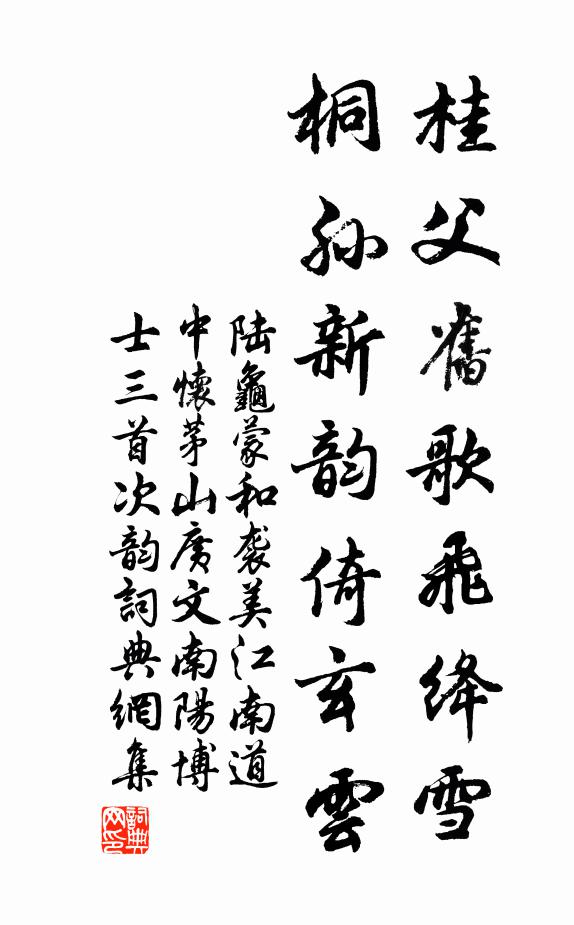 桂父舊歌飛绛雪
桐孙新韵倚玄雲
陆龜蒙和袭美江南道
中懷茅山廣文南陽博
士三首次韵詞典網集
詞典
网印